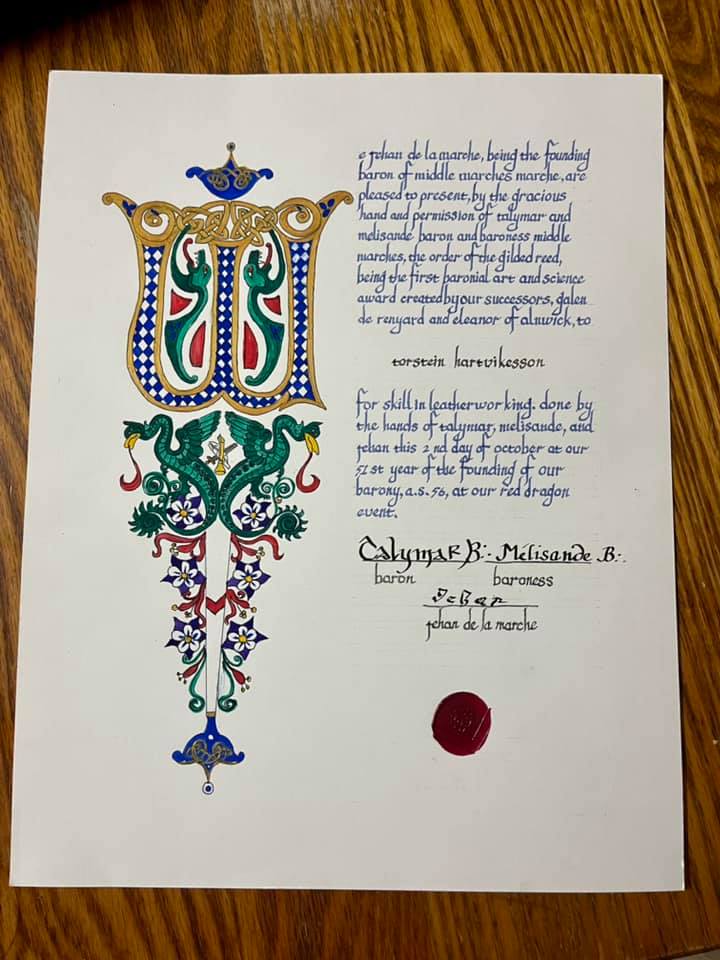 W
e jehan de la marche, being the founding
baron of middle marches marche, are
pleased to present, by the gracious
hand and permission of talymar and
melisande baron and baroness middle
marches, the order of the gilded reed,
being the first baronial art and science
award created by our successors, galen
de renyard and eleanor of alnwick, to
torstein hartvikesson
for skill in leatherworking. done by
the hands of talymar, melisande, and
jehan this 2nd day of october at our
51st year of the founding of our
barony, a.s. 56, at our red dragon
event.
Talymar B:· Mélisande B:·
baron baroness
Jehan
jehan de la marche